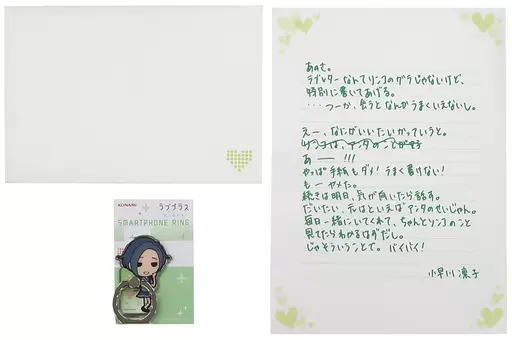 KONAMI
ラブプラス
SMARTPHONE RING
あのさ。
ラブレターなんてリンコのガラじゃないけど、
特別に書いてあげる。
・・・つーか、会うとなんかうまくいえないし。
えー、なにがいいたいかっていうと。
リンコは、アンタのことが好
あー!!!
やっぱ手紙もダメ!うまく書けない!
もーヤメた。
続きは明日、気が向いたら話す。
だいたい、元はといえばアンタのせいじゃん。
毎日一緒にいてくれて、ちゃんとリンコのこと
見てたらわかるはずだし。
じゃそういうことで。バイバイ!
小早川 凛子